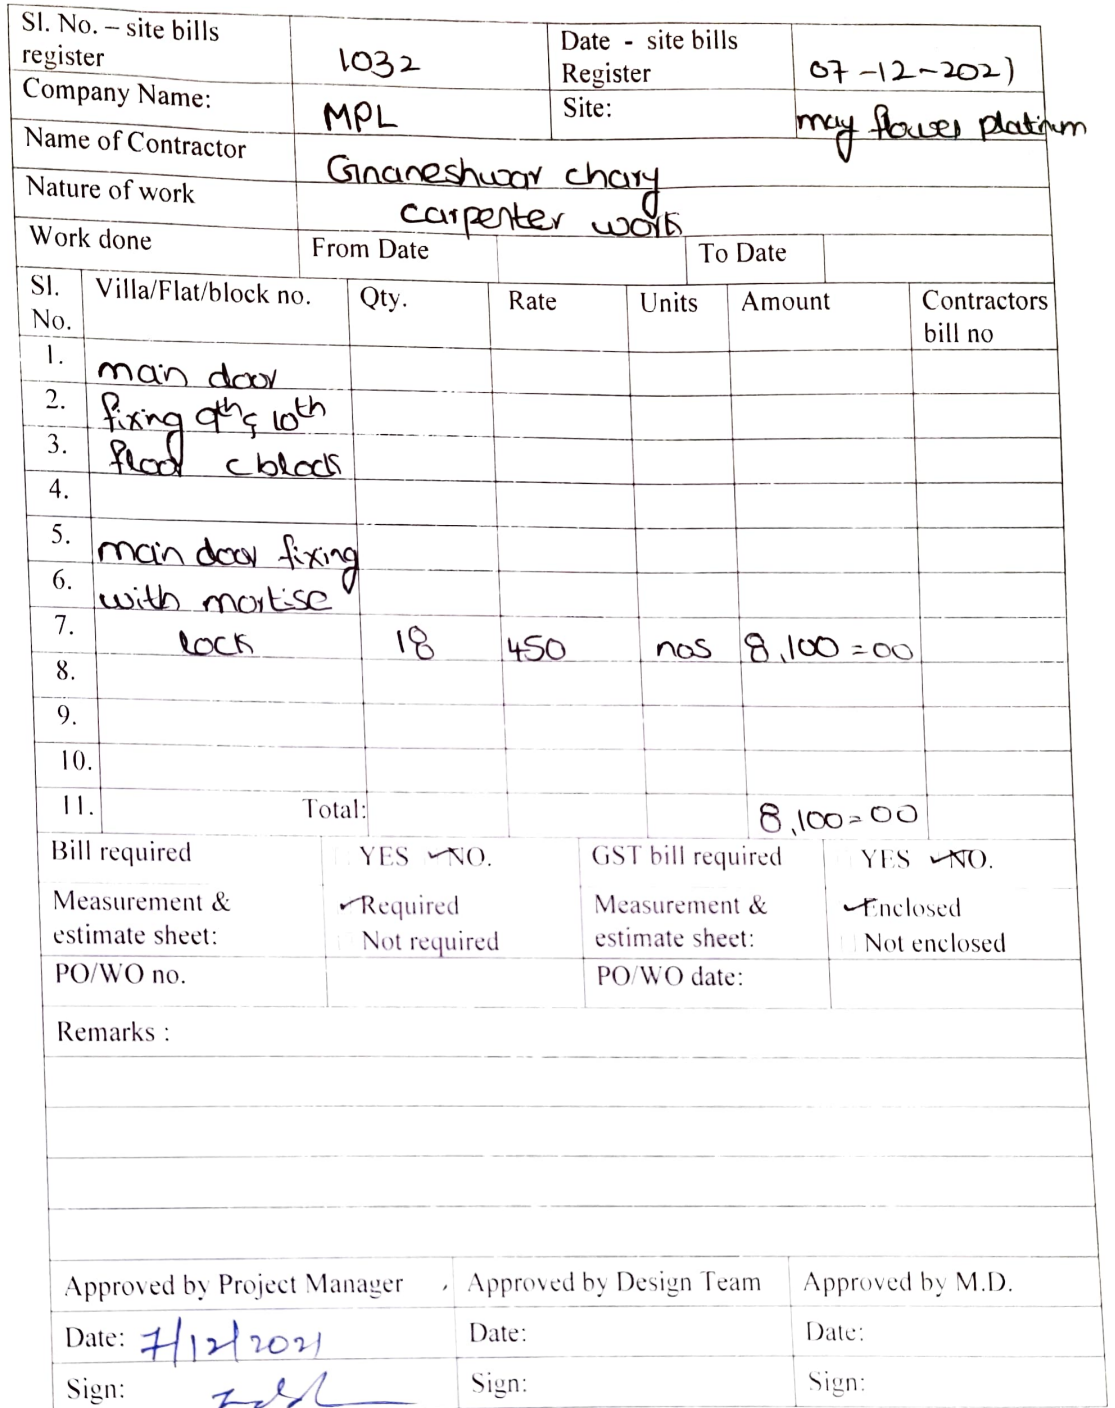 Sl. No. – site bills register 1032 Date - site bills Register 07-12-2021
Company Name: MPL Site: may flower platinum
Name of Contractor Gnaneshwar chary
Nature of work carpenter work
Work done From Date To Date
Sl. No. Villa/Flat/block no. Qty. Rate Units Amount Contractors bill no
1. main door
2. fixing 9th & 10th
3. floor c block
4.
5. main door fixing
6. with mortise
7. lock 18 450 nos 8,100=00
8.
9.
10.
11. Total: 8,100=00
Bill required YES ✓NO. GST bill required YES ✓NO.
Measurement & estimate sheet: ✓Required Measurement & estimate sheet: ✓Enclosed
Not required Not enclosed
PO/WO no. PO/WO date:
Remarks :
Approved by Project Manager Approved by Design Team Approved by M.D.
Date: 7/12/2021 Date: Date:
Sign: Sign: Sign: